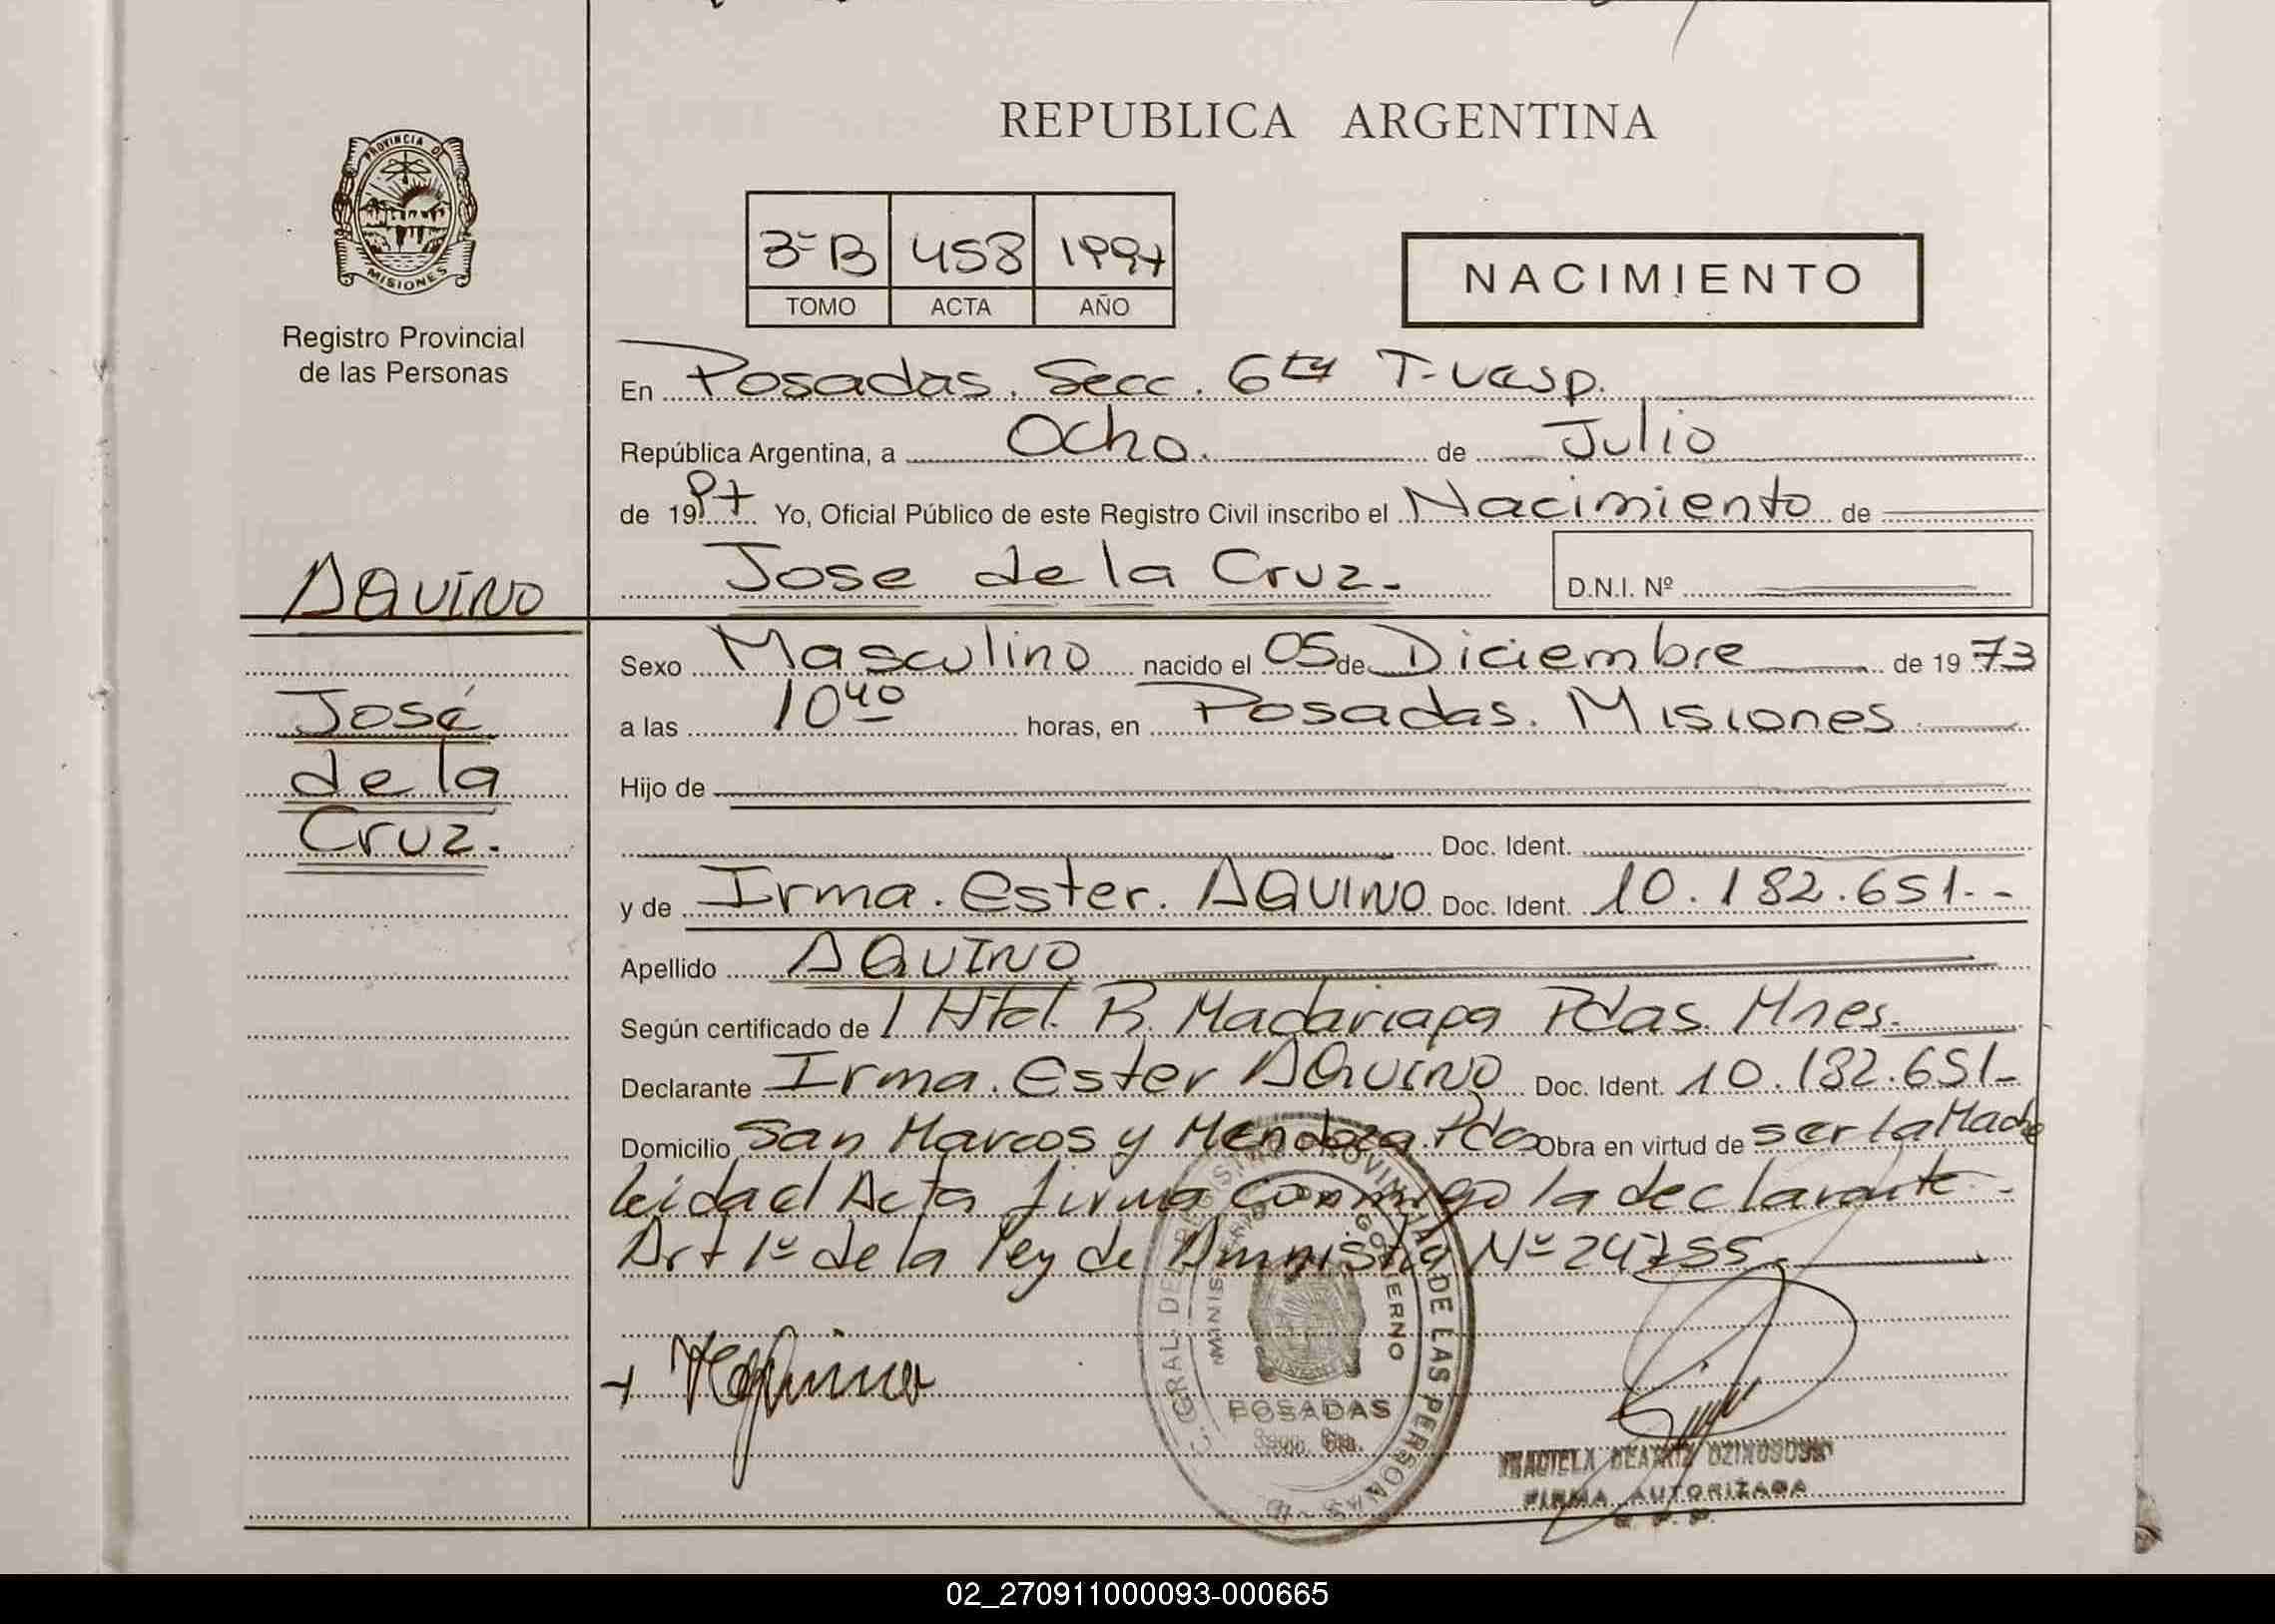 REPUBLICA ARGENTINA
PROVINCIA DE
MISIONES
Registro Provincial
de las Personas
3º B 458 1997
TOMO ACTA AÑO
NACIMIENTO
En Posadas. Secc. 6ta T-vesp.
República Argentina, a Ocho. de Julio
de 1997 Yo, Oficial Público de este Registro Civil inscribo el Nacimiento de
Jose de la Cruz.
D.N.I. Nº
AQUINO
José
de la
Cruz.
Sexo Masculino nacido el 05 de Diciembre de 1973
a las 10 40 horas, en Posadas. Misiones
Hijo de
Doc. Ident.
y de Irma. Ester. AQUINO Doc. Ident. 10.182.651--
Apellido AQUINO
Según certificado de l Htal. R. Madariaga Pdas. Mnes.
Declarante Irma. Ester AQUINO Doc. Ident. 10.182.651-
Domicilio San Marcos y Mendoza. Pdas Obra en virtud de ser la Madre
leida el Acta firma conmigo la declarante-
Art 1º de la ley de Amnistia Nº 24755.
GRAL DE REGISTRO PROVINCIAL DE LAS PERSONAS
GOBIERNO
POSADAS
Secc. 6ta.
BEATRIZ
FIRMA AUTORIZADA
02_270911000093-000665